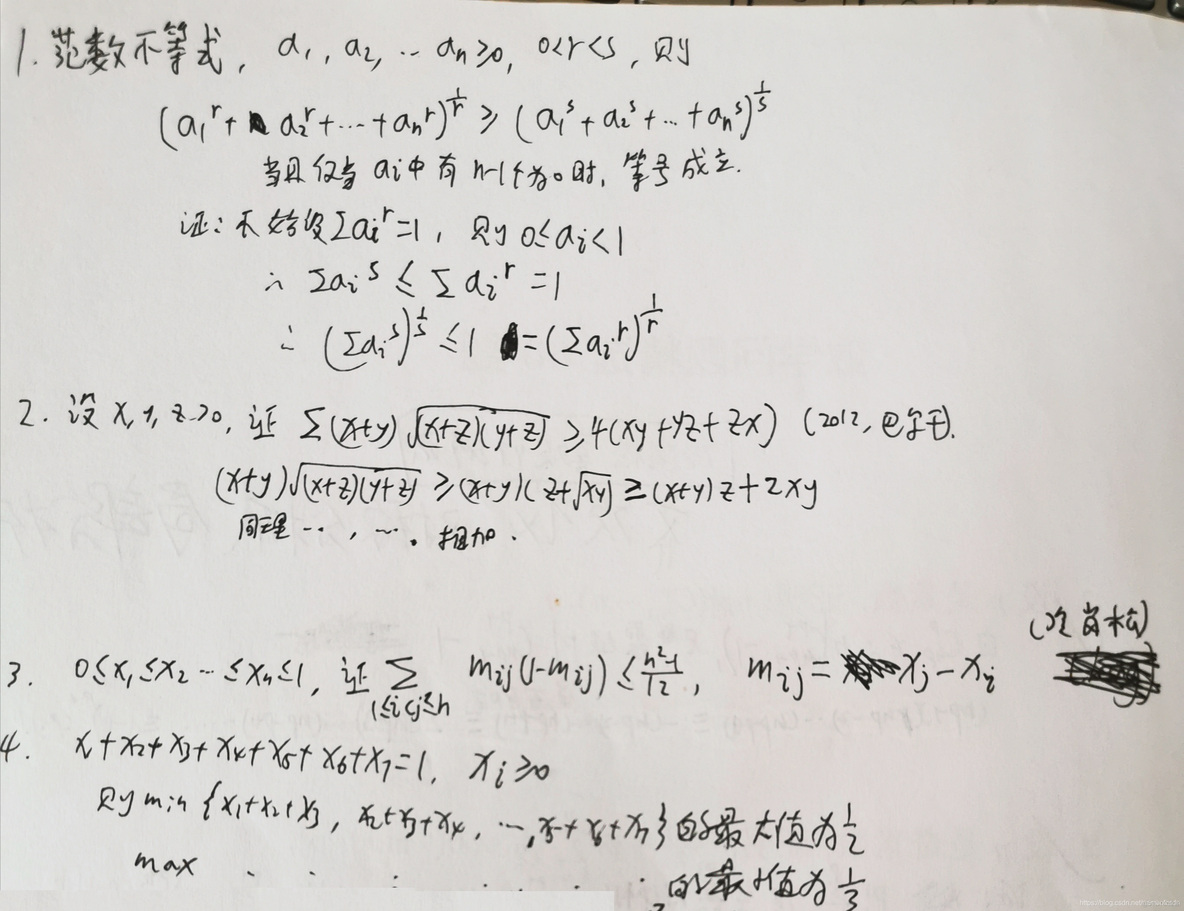 1. 范数不等式, a₁, a₂, … aₙ≥0, 0<r<s, 则
(a₁ʳ+ a₂ʳ+…+aₙʳ)^{1/r} ≥ (a₁ˢ+a₂ˢ+…+aₙˢ)^{1/s}
当且仅当 aᵢ中有 n-1个为0时, 等号成立.
证: 不妨设 Σaᵢʳ=1, 则 0≤aᵢ<1
∴ Σaᵢˢ ≤ Σaᵢʳ =1
∴ (Σaᵢˢ)^{1/s} ≤1 =(Σaᵢʳ)^{1/r}
2. 设 x, y, z>0, 证 Σ(x+y)√((x+z)(y+z)) ≥4(xy+yz+zx) (2012, 巴尔干).
(x+y)√((x+z)(y+z)) ≥(x+y)(z+√xy) ≥(x+y)z+2xy
同理 …, …. 相加.
3. 0≤x₁≤x₂…≤xₙ≤1, 证 Σ_{1≤i<j≤n} mᵢⱼ(1-mᵢⱼ) ≤ (n²-1)/12, mᵢⱼ= xⱼ-xᵢ
4. x₁+x₂+x₃+x₄+x₅+x₆+x₇=1, xᵢ≥0
则 min{x₁+x₂+x₃, x₂+x₃+x₄, …, x₅+x₆+x₇}的最大值为 1/2
max . . . . . . . 的最小值为 1/3